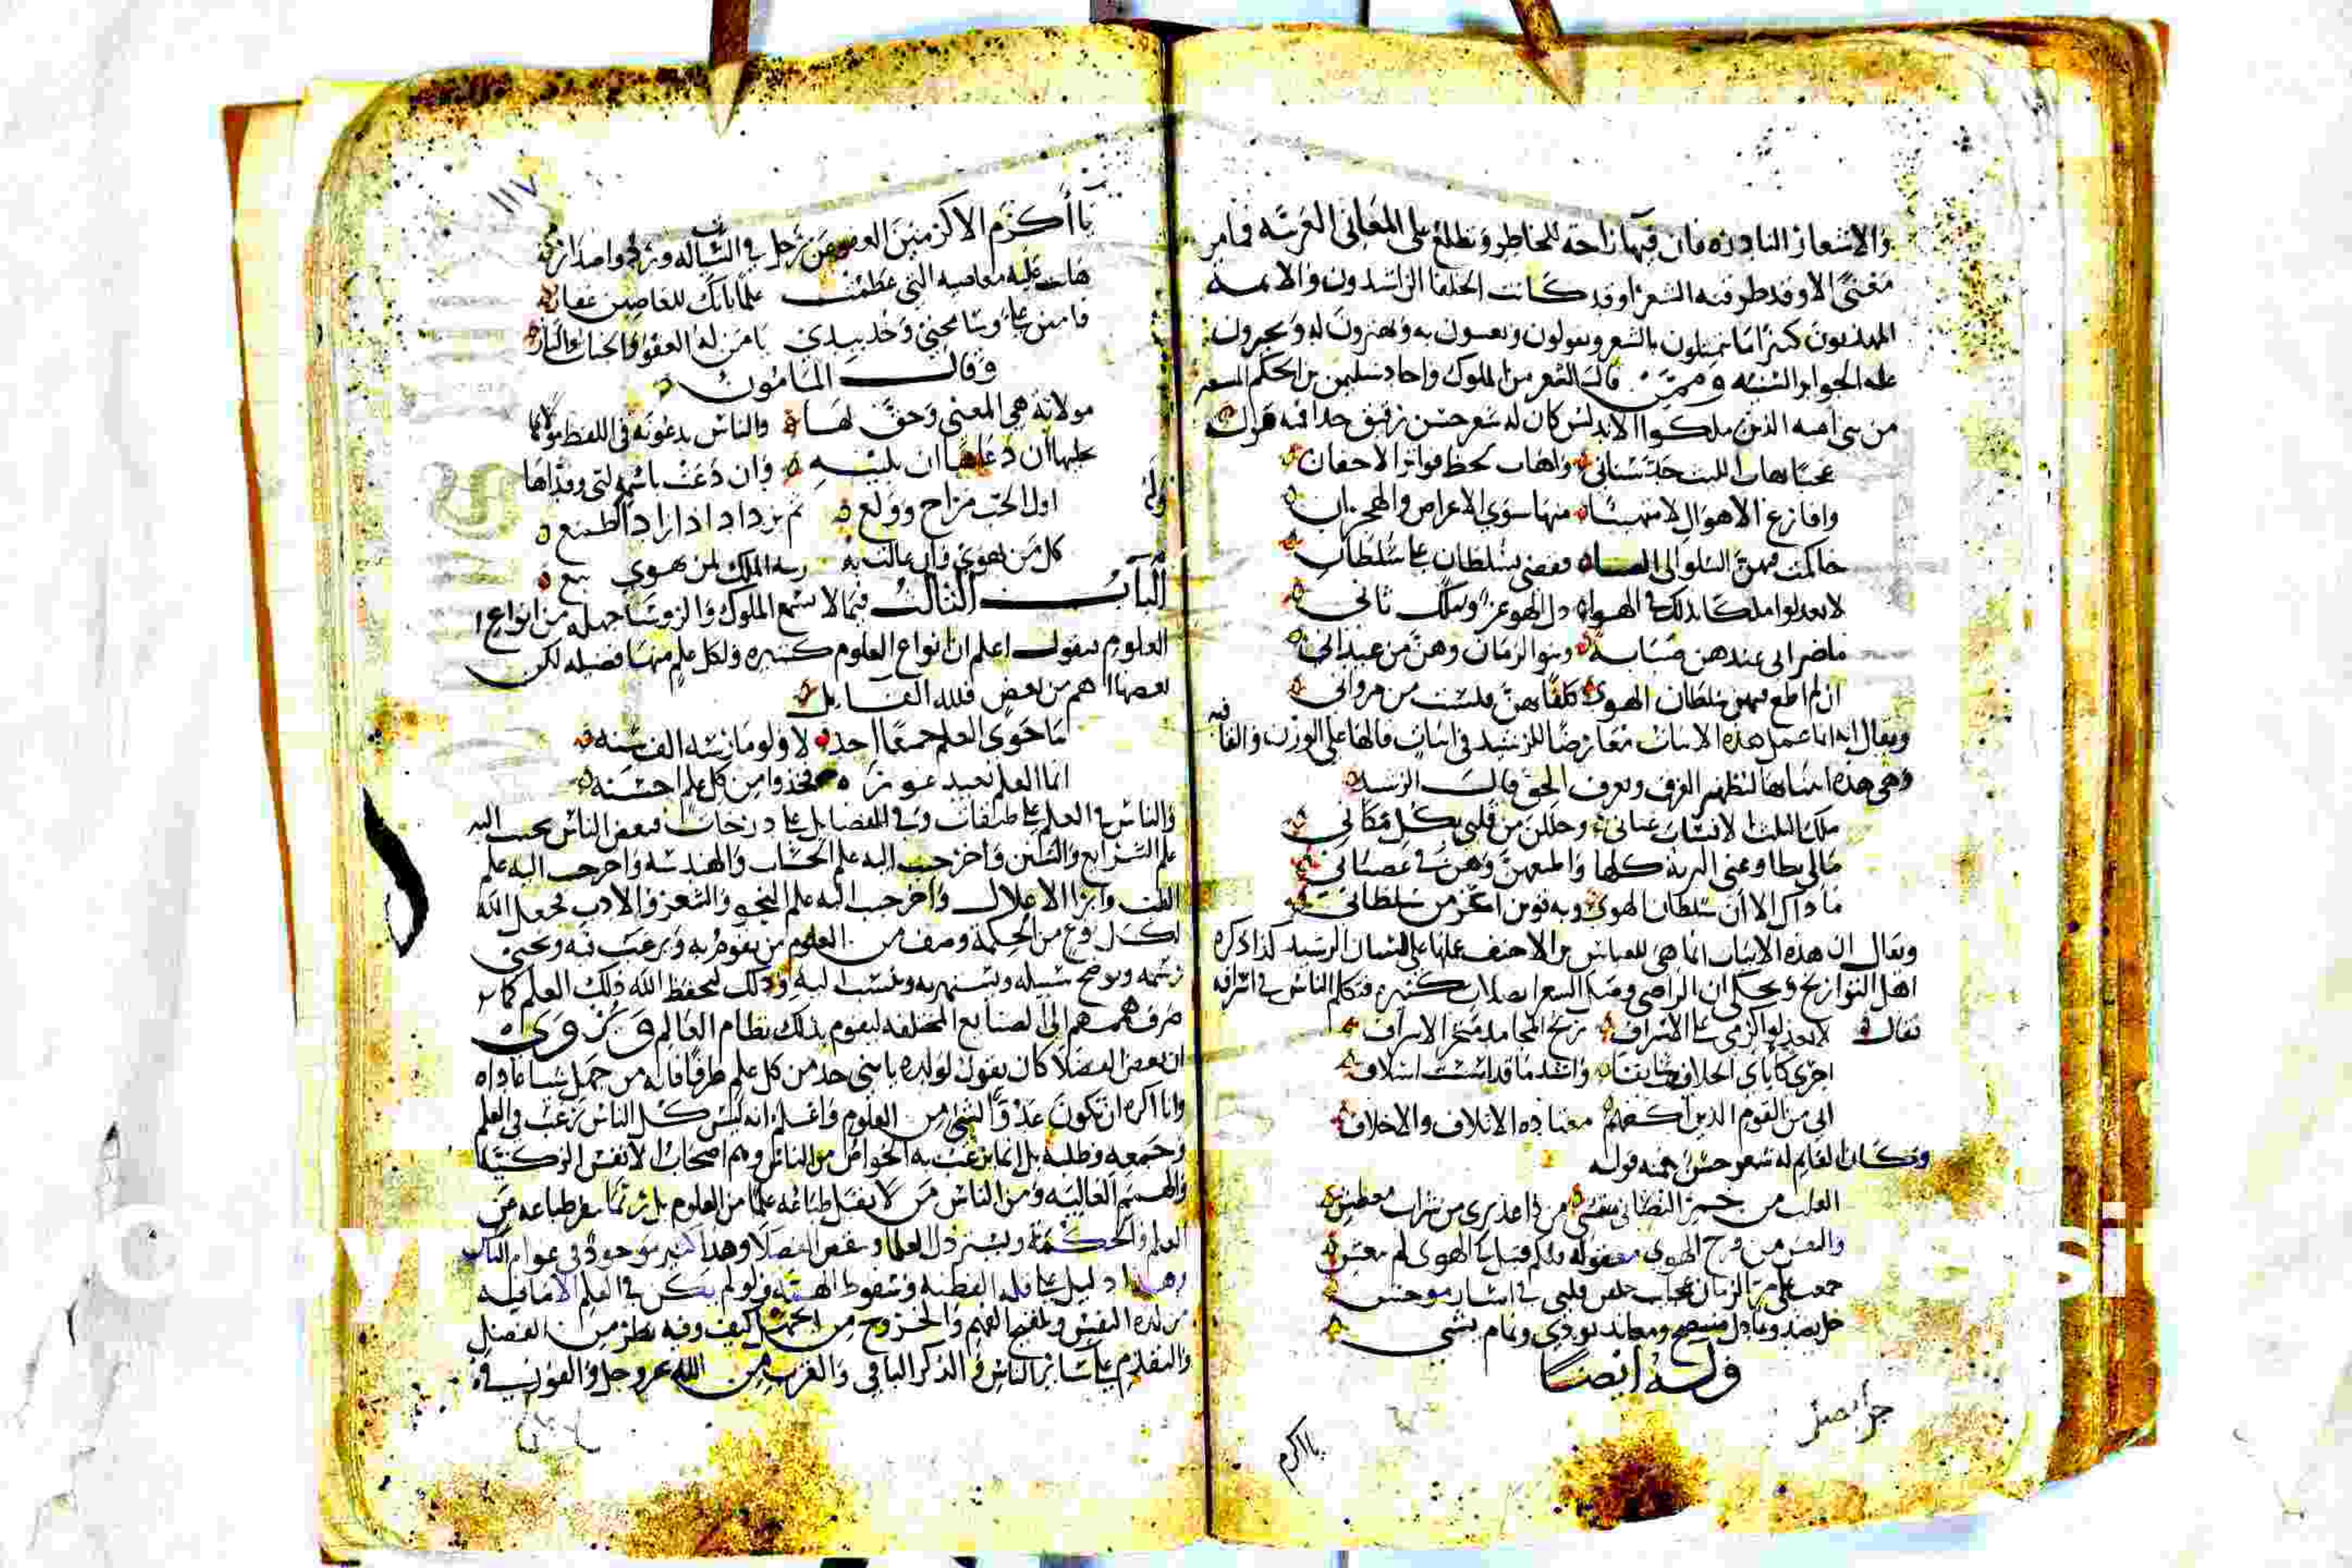 والاشعار النادره فان فيها راحة للخاطر وتطلع على المعاني الغريبه فما من
معنى الا وقد طرقه الشعرا وقد كانت الخلفا الراشدون والائمه
المهديون كثيرا ما يتمثلون بالشعر ويقولون به ويهتزون له ويجيزون
عليه الجوايز السنيه وممن قال الشعر من الملوك واجاد سليمن بن الحكم
من بني اميه الذين ملكوا الاندلس كان له شعر حسن رقيق جدا فمنه قوله
عجبا يهاب الليث حد سناني واهاب لحظ فواتر الاجفان
واقارع الاهوال لا متهيبا منها سوى الاعراض والهجران
حاكمت فيهن السلو الى الصبا فقضى بسلطان على سلطاني
لا تعذلوا ملكا تذلل في الهوى ذل الهوى عز وملك ثاني
ما ضر اني عبدهن صبابة وبنو الزمان وهن من عبداني
ان لم اطع فيهن سلطان الهوى كلفا بهن فلست من مرواني
ويقال انه انما عمل هذه الابيات معارضا للرشيد في ابيات قالها على الوزن والقافيه
وهي هذه اثبتناها ليظهر الفرق ويعرف الحق قال الرشيد
ملك الثلاث الانسات عناني وحللن من قلبي بكل مكان
مالي تطاوعني البرية كلها واطيعهن وهن في عصياني
ما ذاك الا ان سلطان الهوى وبه قوين اعز من سلطاني
ويقال ان هذه الابيات انما هي للعباس بن الاحنف عملها على لسان الرشيد كذا ذكره
اهل التواريخ ويحكى ان الراضي وصل الشعرا بصلات كثيره فتكلم الناس في اسرافه
فقال لا تعذلوا كرمي على الاسراف ربح المحامد متجر الاشراف
اجري كابائي الخلايف سابقا واشيد ما قد اسست اسلافي
اني من القوم الذين اكفهم معتادة الاتلاف والاخلاف
وكان القايم له شعر حسن فمنه قوله
القلب من خمر التصابي منتشي من ذا عذيري من شراب معطش
والنفس من برح الهوى مقتوله ولكم قتيل في الهوى لم ينعش
جمعت علي من الزمان عجاب خلفن قلبي في اسار موحش
خل يصد وعاذل متنصح ومعاند يوذي ونمام يشي
وله ايضا
يا اكرم
١١٧
يا اكرم الاكرمين العفو عن زجل
هانت عليه معاصيه التي عظمت علما بانك للعاصين غفار
فامنن علي وسامحني وخذ بيدي يا من له العفو والجنات والنار
وقال المامون
مولاتنا هي المعنى وحق لها والناس يدعونه في اللفظ مولاها
ان دعاها ان تلبيه وان دعت باسمه لبى وفداها
وله اول الحب مزاح وولع ثم يزداد اذا زاد الطمع
كل من يهوى وان عالت به رتبة الملك لمن يهوى تبع
الباب الثالث فيما لا يسع الملوك والروسا جهله من انواع
العلوم فنقول اعلم ان انواع العلوم كثيره ولكل علم منها فضيله لكن
بعضها اهم من بعض فلله القايل
ما حوى العلم جميعا احد لا ولو مارسه الف سنه
انما العلم بعيد غوره فخذوا من كل علم احسنه
والناس في العلم على طبقات وفي الفضايل على درجات فبعض الناس يحبب اليه
علم الشرايع والسنن واخر حبب اليه علم الحساب والهندسه واخر حبب اليه علم
الطب وابرا الاعلال واخر حبب اليه علم النحو والشعر والادب فجعل الله
لكل نوع من الحكمة وصنف من العلوم من يقوم به ويرغب فيه ويحيي
رسمه ويوضح سبيله ويشتهر به وينسب اليه وذلك ليحفظ الله ذلك العلم كما
صرف هممهم الى الصنايع المختلفه ليقوم بذلك نظام العالم وروي
ان بعض الفضلا كان يقول لولده يا بني خذ من كل علم طرفا فانه من جهل شيا عاداه
وانا اكره ان تكون عدوا لشي من العلوم واعلم انه ليس كل الناس يرغب في العلم
وجمعه وطلبه بل انما يرغب به الخواص من الناس وهم اصحاب الانفس الزكيه
والهمم العاليه ومن الناس من لا يقبل طباعه علما من العلوم بل ربما ينفر طباعه عن
العلم والحكمة ويسترذل العلما وهذا كثير موجود في عوام الناس
وهذا دليل على قلة الفطنه وسقوط الهمه ولو لم يكن في العلم الا ما فيه
من لذة النفس وتلقيح الفهم والخروج من الجهل كيف وفيه نظر من الفضل
والتقدم على ساير الناس والذكر الباقي والقرب من الله عز وجل والفوز